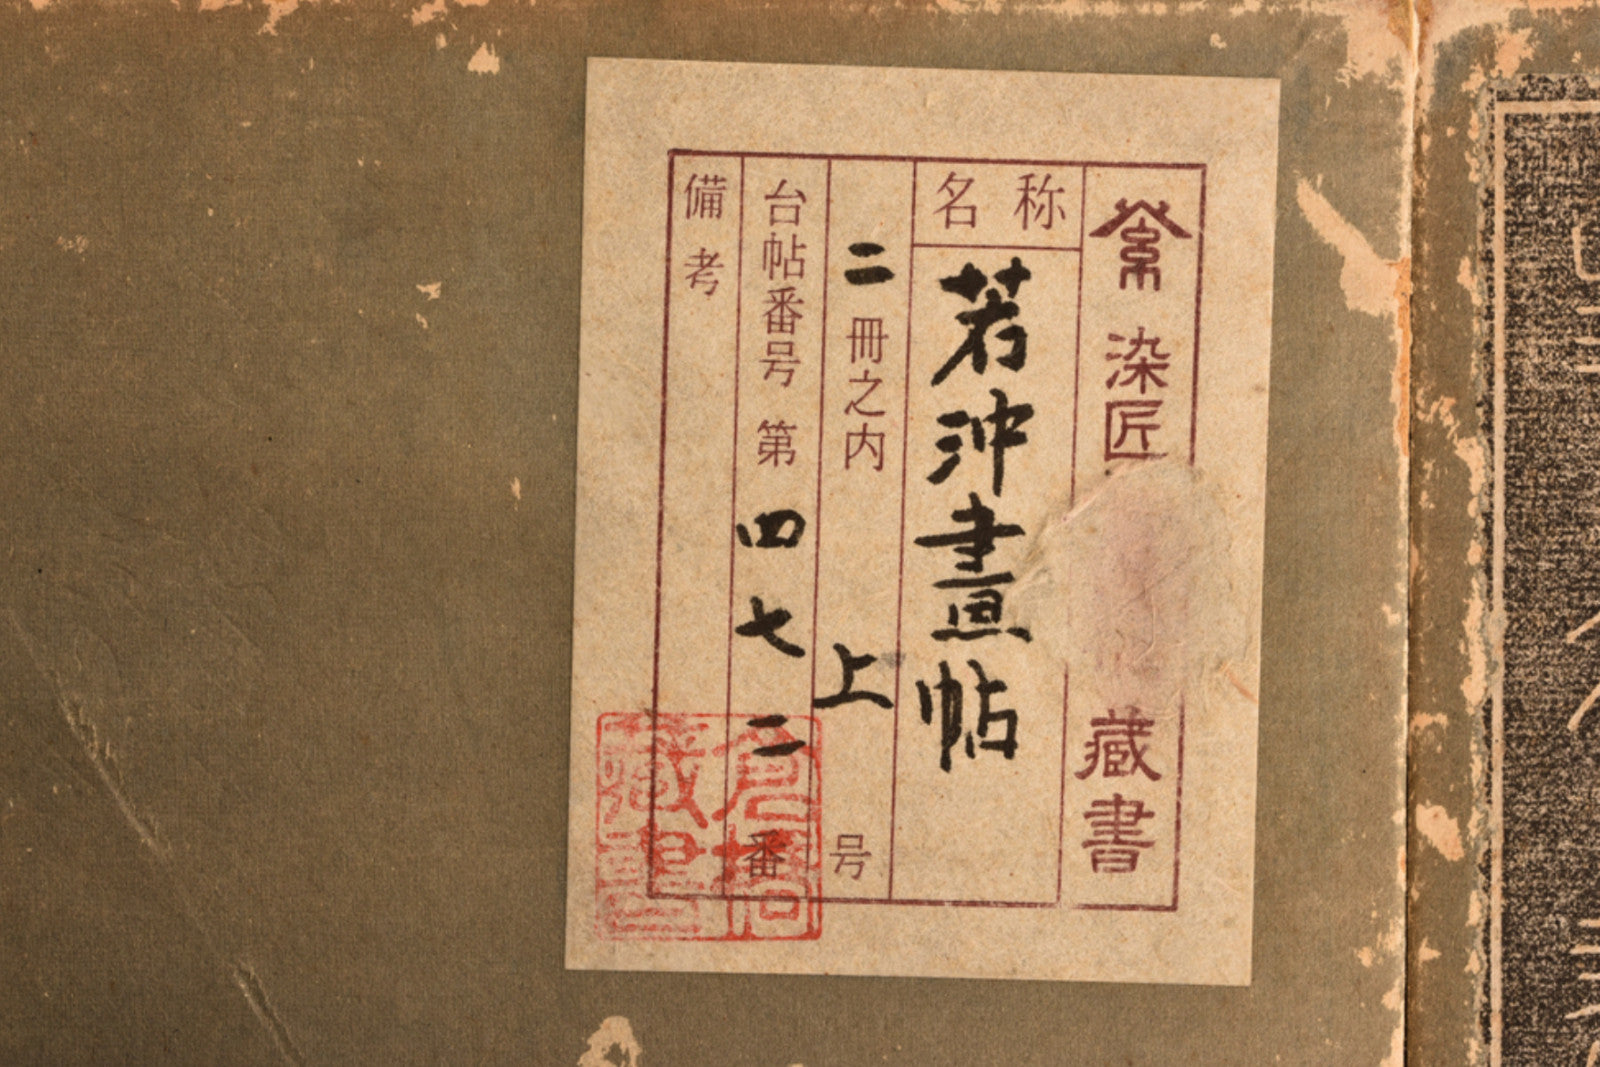 染匠
藏書
名称
若沖畫帖
二冊之内
上号
台帖番号 第四七二番
備考
藏書